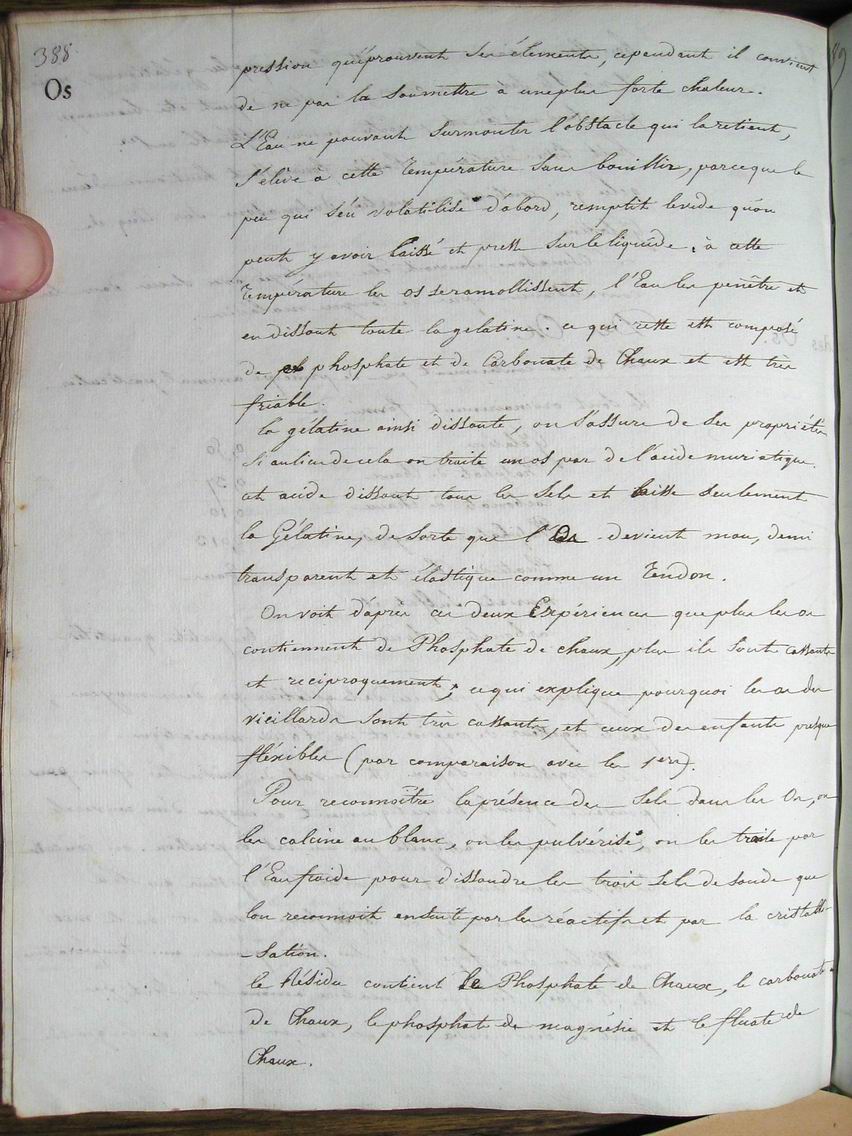 388.
Os
pression qu'éprouvent ses élements, cependant il convient
de ne pas la soumettre à une plus forte chaleur.
L'Eau ne pouvant surmonter l'obstacle qui la retient,
s'élève à cette température sans bouillir, parceque le
peu qui s'en volatilise d'abord, remplit le vide qu'on
peut y avoir laissé et presse sur le liquide, à cette
température les os se ramollissent, l'Eau les penêtre et
en dissout toute la gelatine. ce qui reste est composé
de phosphate et de Carbonate de Chaux et est très
friable.
la gélatine ainsi dissoute, on s'assure de ses propriétés
Si au lieu de cela on traite un os par de l'acide muriatique.
cet acide dissout tous les sels et laisse seulement
la Gélatine, de sorte que l'Os devient mou, demi
transparent et élastique comme un Tendon.
On voit d'après ces deux Expériences que plus les os
contiennent de Phosphate de chaux, plus ils sont cassants
et reciproquement; ce qui explique pourquoi les os des
vieillards sont très cassants, et ceux des enfants presque
fléxibles (par comparaison avec les 1ers).
Pour reconnoître la présence des Sels dans les Os, on
les calcine au blanc, on les pulvérise, on les traite par
l'Eau froide pour dissoudre les trois sels de soude que
l'on reconnoit ensuite par les réactifs et par la cristalli-
-sation.
le Résidu contient le Phosphate de Chaux, le carbonate
de Chaux, le phosphate de magnésie et le fluate de
Chaux.